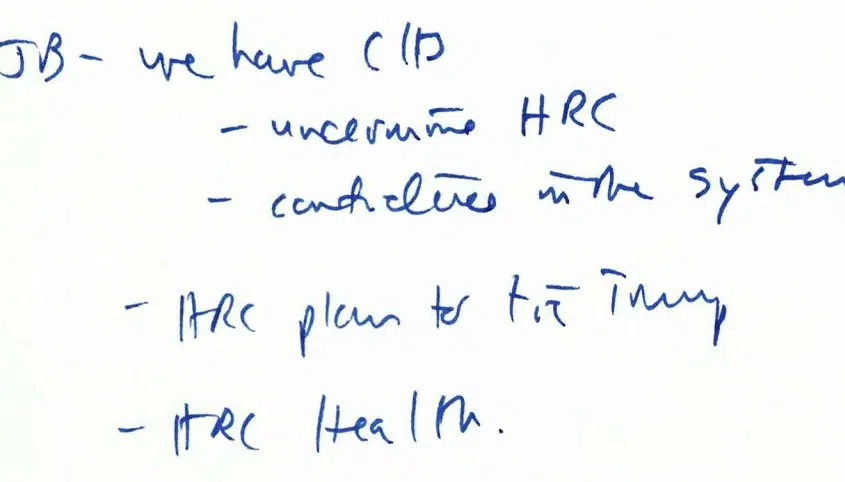 JB - we have CIA
- undermine HRC
- candidates in the system
- HRC plan to tie Trump
- HRC Health.